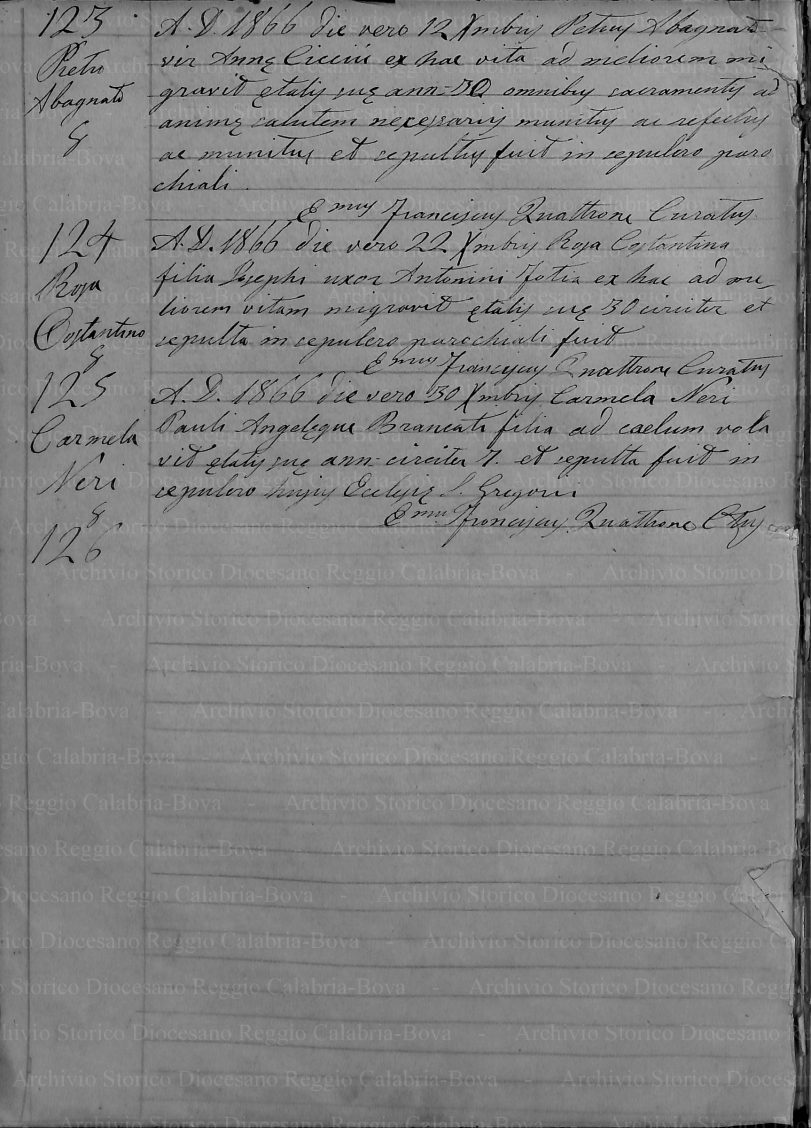 123
Pietro
Abagnato
A. D. 1866 die vero 12 Xmbris Petrus Abagnato
vir Annę Cicciù ex hac vita ad meliorem mi
gravit ętatis suę ann. 50 omnibus sacramentis ad
animę salutem necessariis munitus ac refectus
ac munitus et sepultus fuit in sepulcro paro
chiali.
Emus Franciscus Quattrone Curatus
124
Rosa
Costantino
A. D. 1866 die vero 22 Xmbris Rosa Costantina
filia Josephi uxor Antonini Fotia ex hac ad me
liorem vitam migravit ętatis suę 30 circiter et
sepulta in sepulcro parochiali fuit
Emus Franciscus Quattrone Curatus
125
Carmela
Neri
A. D. 1866 die vero 30 Xmbris Carmela Neri
Pauli Angelęque Brancati filia ad caelum vola
vit ętatis suę ann. circiter 7. et sepulta fuit in
sepulcro hujus Eclesię S. Gregorii
Emus Franciscus Quattrone Ctus
126
Archivio Storico Diocesano Reggio Calabria-Bova